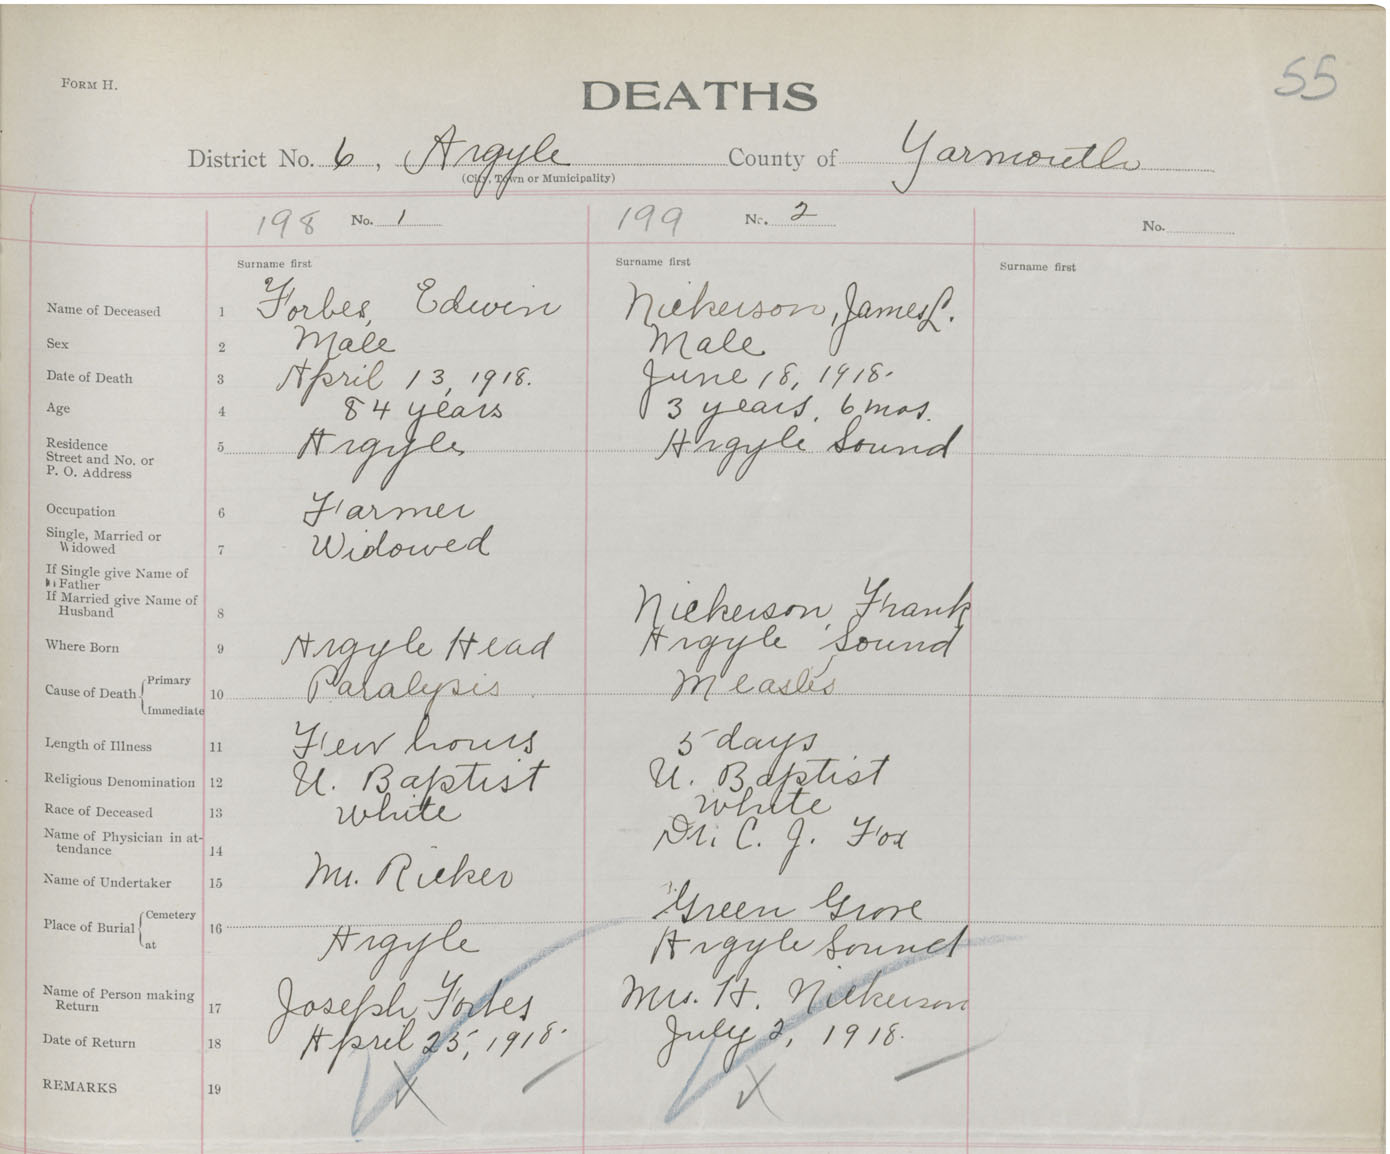 FORM H.
DEATHS
55
District No. 6, Argyle County of Yarmouth
(City, Town or Municipality)
198 No. 1 199 No. 2 No.
Surname first Surname first Surname first
Name of Deceased 1 Forbes, Edwin Nickerson, James L.
Sex 2 Male Male
Date of Death 3 April 13, 1918. June 18, 1918.
Age 4 84 years 3 years, 6 mos.
Residence 5 Argyle Argyle Sound
Street and No. or
P. O. Address
Occupation 6 Farmer
Single, Married or
Widowed 7 Widowed
If Single give Name of
Father
If Married give Name of
Husband 8 Nickerson, Frank
Where Born 9 Argyle Head Argyle Sound
Cause of Death Primary
Immediate 10 Paralysis Measles
Length of Illness 11 Few hours 5 days
Religious Denomination 12 U. Baptist U. Baptist
Race of Deceased 13 White White
Name of Physician in at-
tendance 14 Dr. C. J. Fox
Name of Undertaker 15 Mr. Ricker
Place of Burial Cemetery 16 Green Grove
at Argyle Argyle Sound
Name of Person making
Return 17 Joseph Forbes Mrs. H. Nickerson
Date of Return 18 April 25, 1918. July 2, 1918.
REMARKS 19 X X